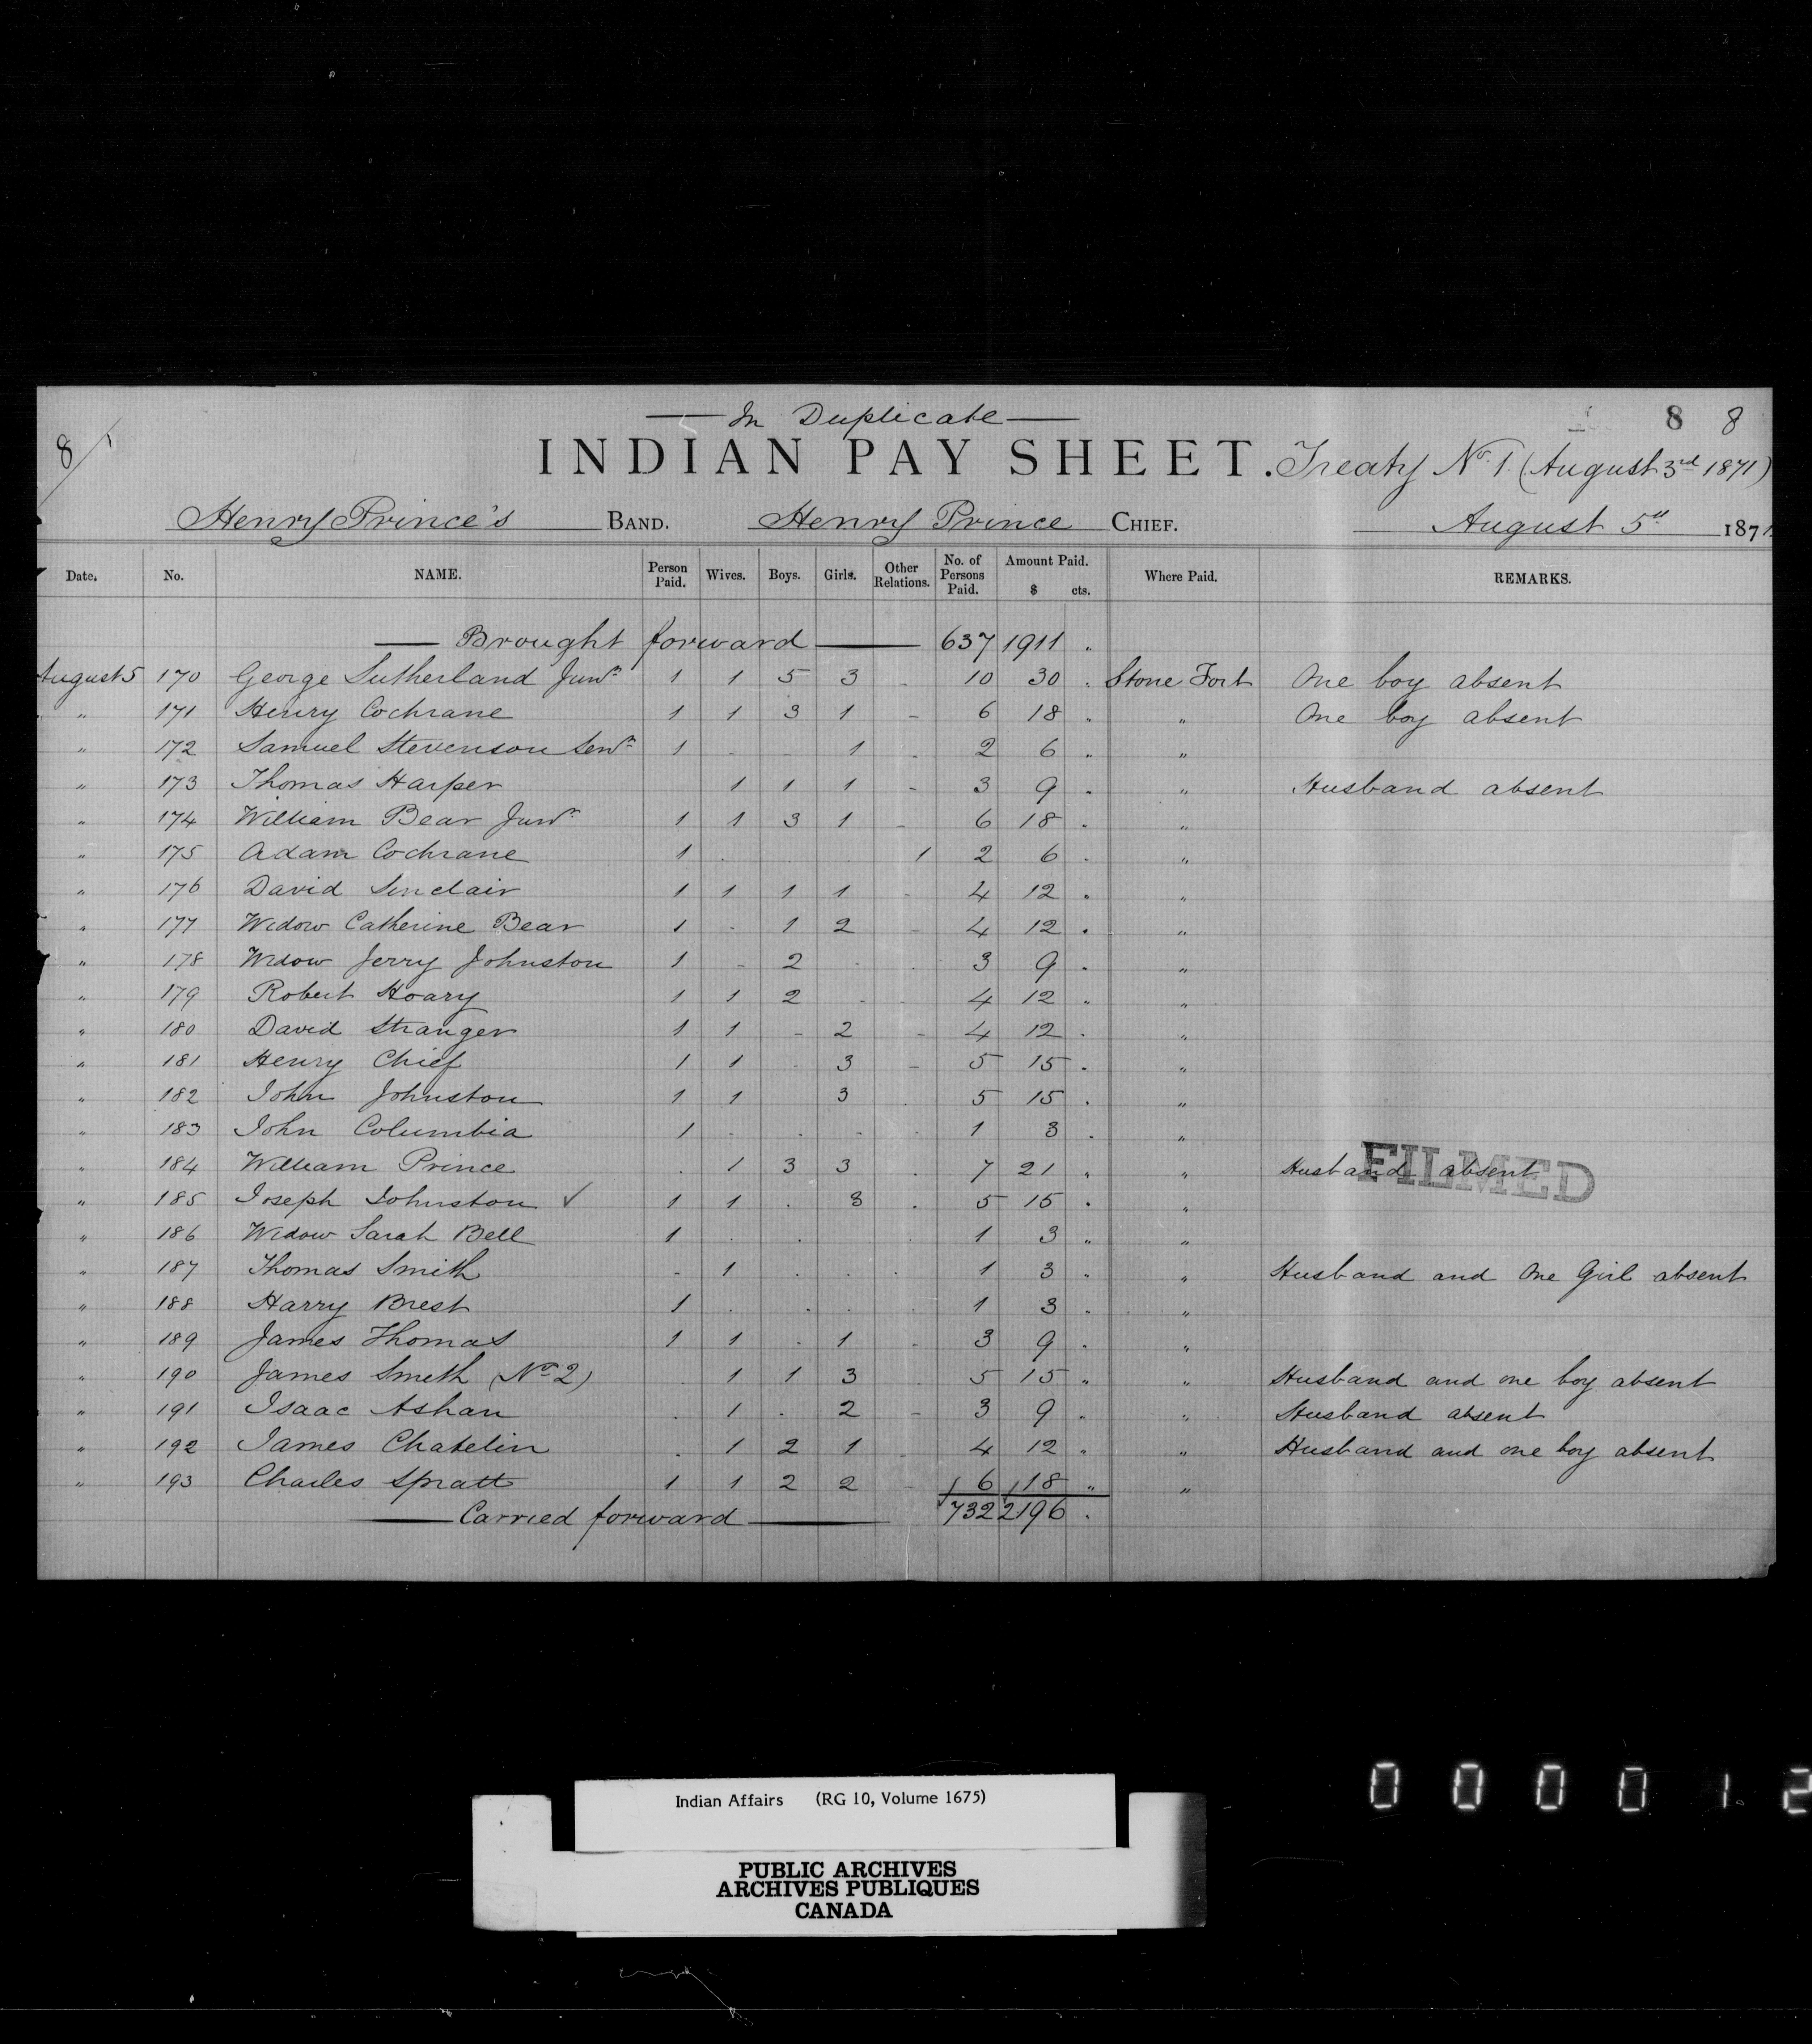 — In Duplicate —
8 8
8/1
INDIAN PAY SHEET. Treaty No. 1. (August 3rd 1871)
Henry Prince's BAND. Henry Prince CHIEF. August 5th 1871
Date. No. NAME. Person Paid. Wives. Boys. Girls. Other Relations. No. of Persons Paid. Amount Paid. $ cts. Where Paid. REMARKS.
— Brought forward — 637 1911 "
August 5 170 George Sutherland Junr 1 1 5 3 - 10 30 . Stone Fort One boy absent
" 171 Henry Cochrane 1 1 3 1 - 6 18 " " One boy absent
" 172 Samuel Stevenson Senr 1 - - 1 - 2 6 " "
" 173 Thomas Harper 1 1 1 - 3 9 " " Husband absent
" 174 William Bear Junr 1 1 3 1 - 6 18 . "
" 175 Adam Cochrane 1 . . . 1 2 6 . "
" 176 David Sinclair 1 1 1 1 - 4 12 " "
" 177 Widow Catherine Bear 1 - 1 2 - 4 12 . "
" 178 Widow Jerry Johnston 1 - 2 . . 3 9 . "
" 179 Robert Hoary 1 1 2 . . 4 12 " "
" 180 David Stranger 1 1 - 2 - 4 12 . "
" 181 Henry Chief 1 1 - 3 - 5 15 . "
" 182 John Johnston 1 1 3 . 5 15 . "
" 183 John Columbia 1 . . . . 1 3 . "
" 184 William Prince 1 3 3 . 7 21 " " Husband absent
FILMED
" 185 Joseph Johnston ✓ 1 1 . 3 . 5 15 . "
" 186 Widow Sarah Bell 1 . . . 1 3 " "
" 187 Thomas Smith - 1 . . . 1 3 " " Husband and One Girl absent
" 188 Harry Brest 1 . . . . 1 3 . "
" 189 James Thomas 1 1 . 1 - 3 9 . "
" 190 James Smith (No 2) . 1 1 3 5 15 " " Husband and one boy absent
" 191 Isaac Ashan . 1 . 2 - 3 9 . " Husband absent
" 192 James Chatelin . 1 2 1 . 4 12 " " Husband and one boy absent
" 193 Charles Spratt 1 1 2 2 - 6 18 " "
— Carried forward — 732 2196 .
0 0 0 0 1 2
Indian Affairs (RG 10, Volume 1675)
PUBLIC ARCHIVES
ARCHIVES PUBLIQUES
CANADA